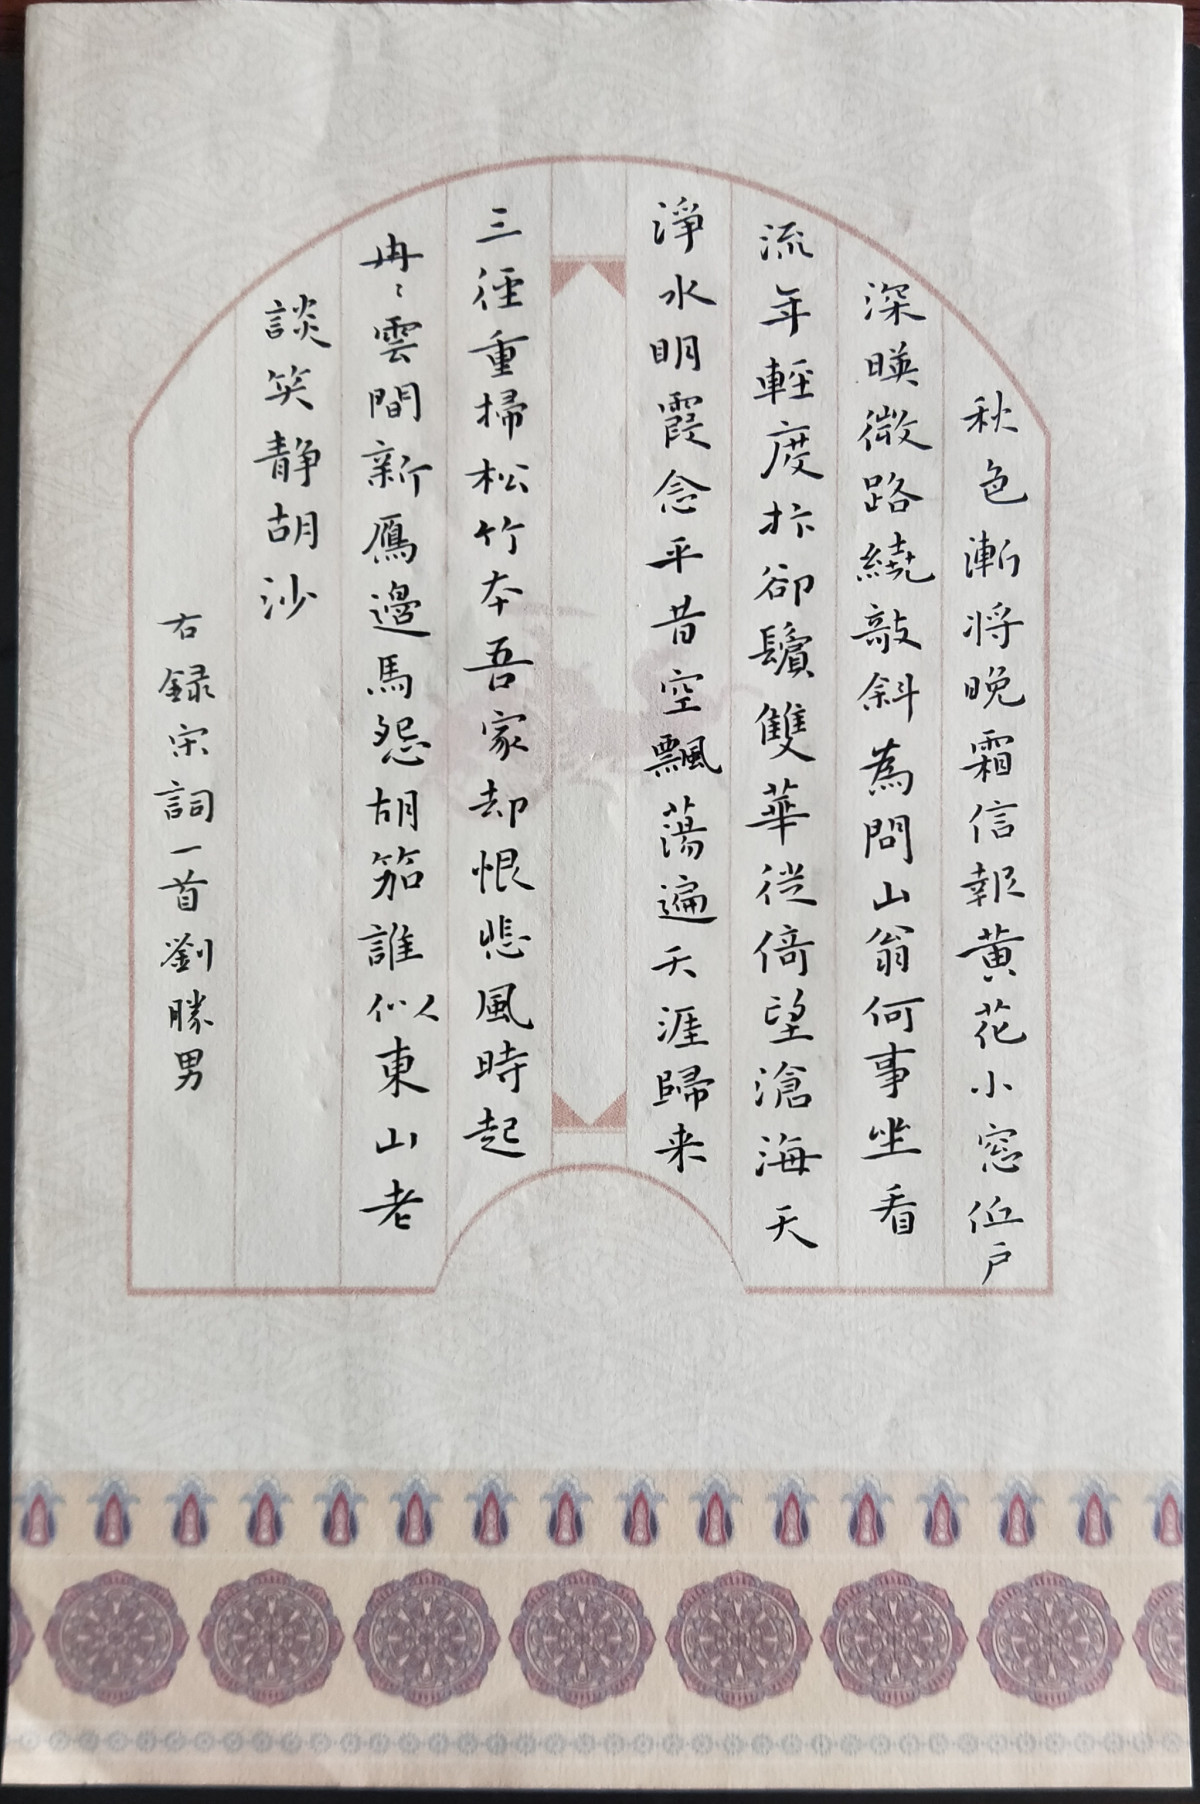 秋色漸將晚霜信報黃花小窓低戶
深暎微路繞敲斜為問山翁何事坐看
流年輕度拚卻鬢雙華徙倚望滄海天
淨水明霞念平昔空飄蕩遍天涯歸来
三徑重掃松竹本吾家却恨悲風時起
冉〻雲間新鴈邊馬怨胡笳誰似東山老
談笑靜胡沙
右録宋詞一首劉勝男